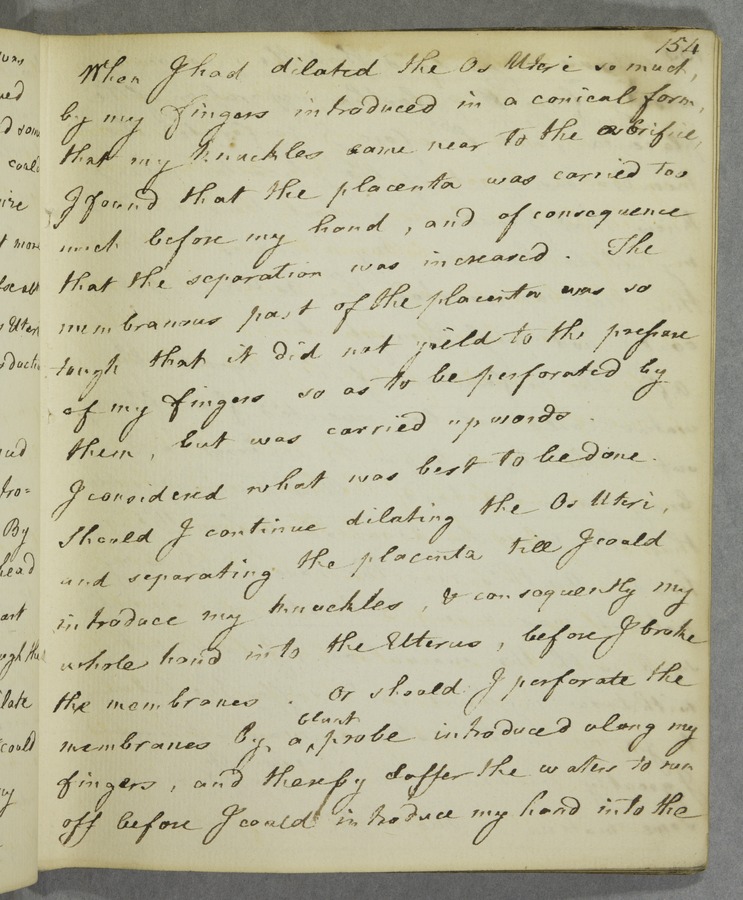 154
When I had dilated the Os Uteri so much,
by my fingers introduced in a conical form,
that my knuckles came near to the orifice,
I found that the placenta was carried too
much before my hand, and of consequence
that the separation was increased. The
membranous part of the placenta was so
tough that it did not yield to the pressure
of my fingers so as to be perforated by
them, but was carried upwards.
I considered what was best to be done.
Should I continue dilating the Os Uteri,
and separating the placenta till I could
introduce my knuckles, & consequently my
whole hand into the Uterus, before I broke
the membranes. Or should I perforate the
blunt
membranes by a ‸ probe introduced along my
fingers, and thereby suffer the waters to run
off before I could introduce my hand into the
ued
could
t more
Uteri
By
head
art
late
could
my